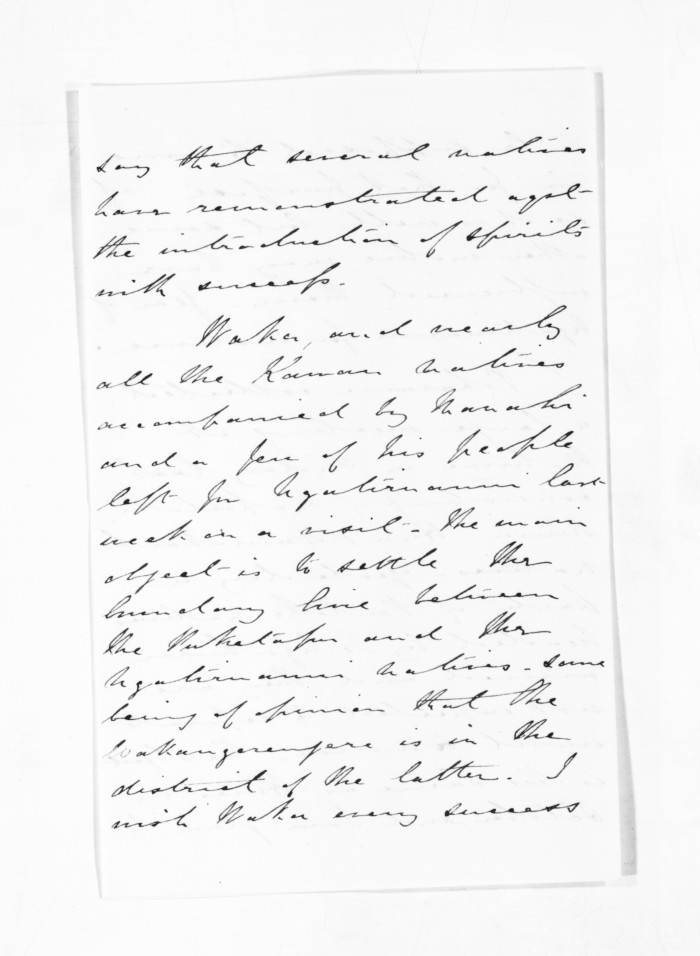 say that several natives
have remonstrated agst
the introduction of spirits
with success.
Waka, and nearly
all the Kaman natives
accompanied by Manahi
and a few of his people
left for Ngatiruanui last
week on a visit - The main
object is to settle the
boundary line between
the Puketapu and the
Ngatiruanui natives - some
being of opinion that the
is in the
district of the latter. I
wish Waka every success